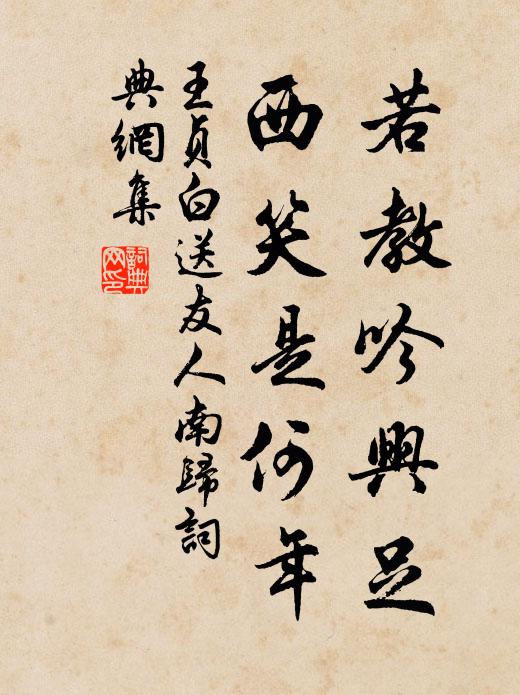 若教吟興足
西笑是何年
王貞白送友人南歸詞
典網集
詞典
网印